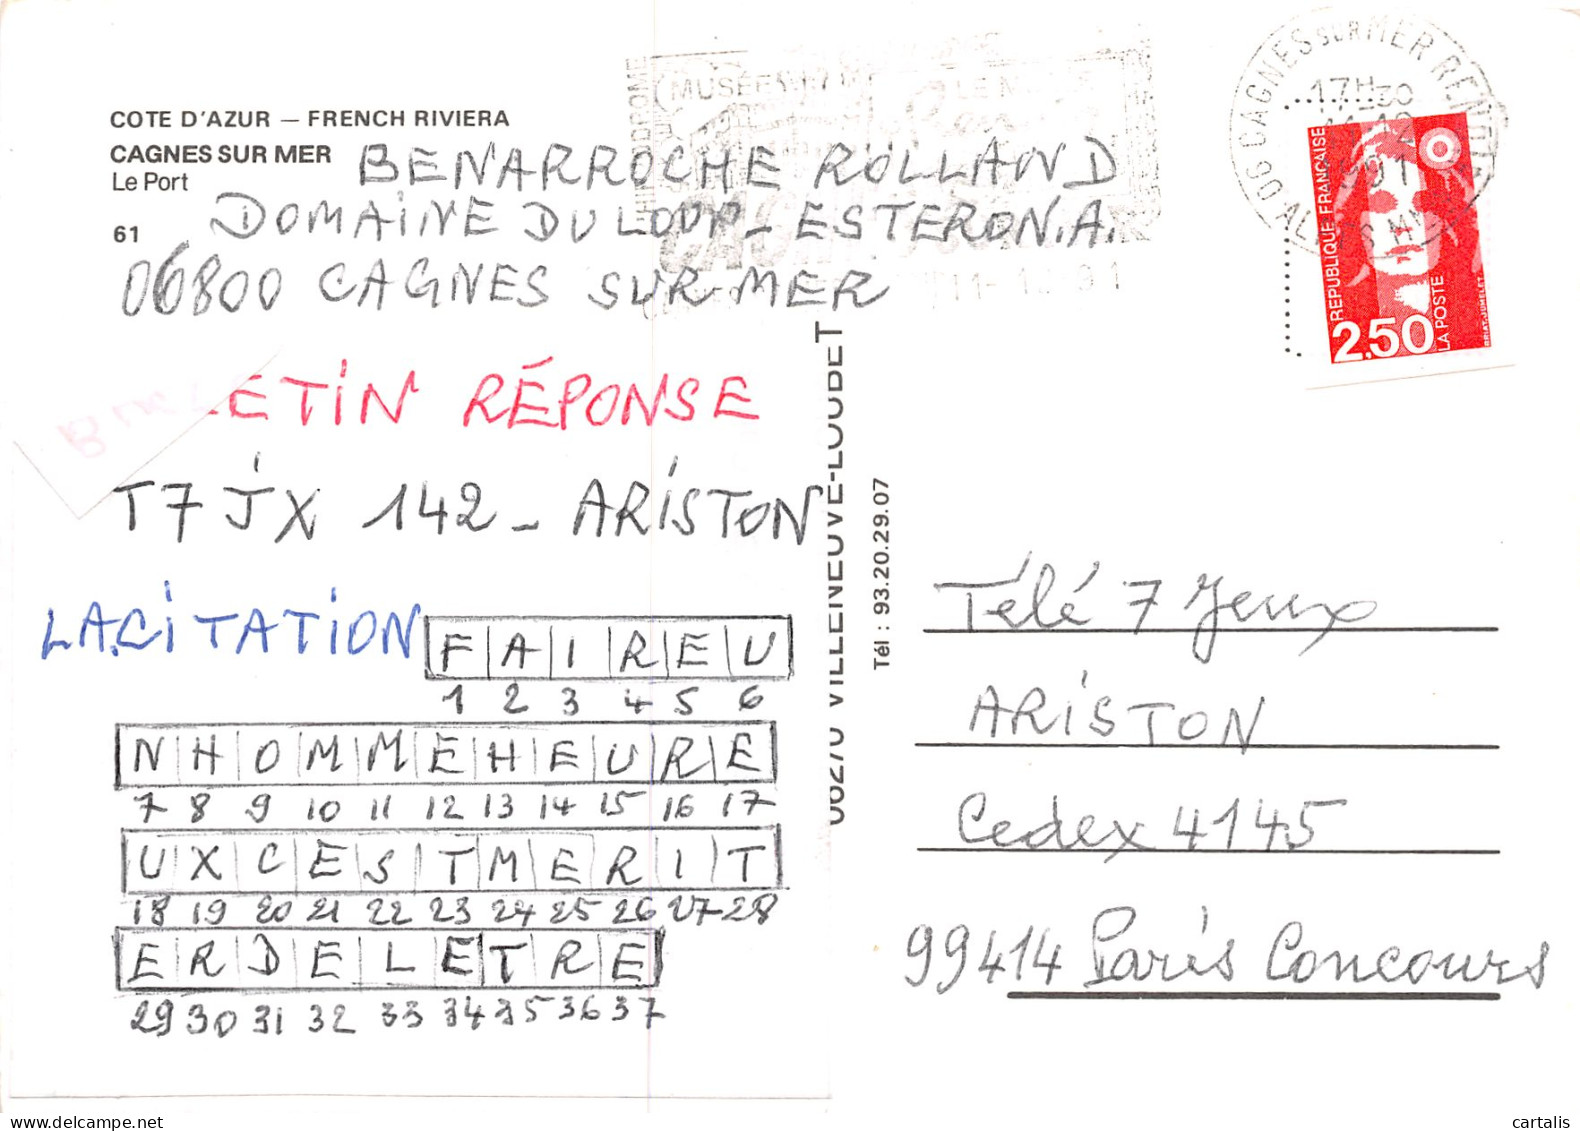 COTE D'AZUR — FRENCH RIVIERA
CAGNES SUR MER
Le Port
61
BENARROCHE ROLLAND
DOMAINE DU LOUP_ ESTERON.A.
06800 CAGNES SUR MER
LETIN RÉPONSE
T7 JX 142 - ARISTON
LA CITATION
F A I R E U
1 2 3 4 5 6
N H O M M E H E U R E
7 8 9 10 11 12 13 14 15 16 17
U X C E S T M E R I T
18 19 20 21 22 23 24 25 26 27 28
E R D E L E T R E
29 30 31 32 33 34 35 36 37
06270 VILLENEUVE-LOUBET
Tél : 93.20.29.07
MUSÉE
06 CAGNES SUR MER RENOIR
17H30
91
ALPES MME
REPUBLIQUE FRANÇAISE
2,50
LA POSTE
Télé 7 Jeux
ARISTON
Cedex 4145
99414 Paris Concours
cartalis